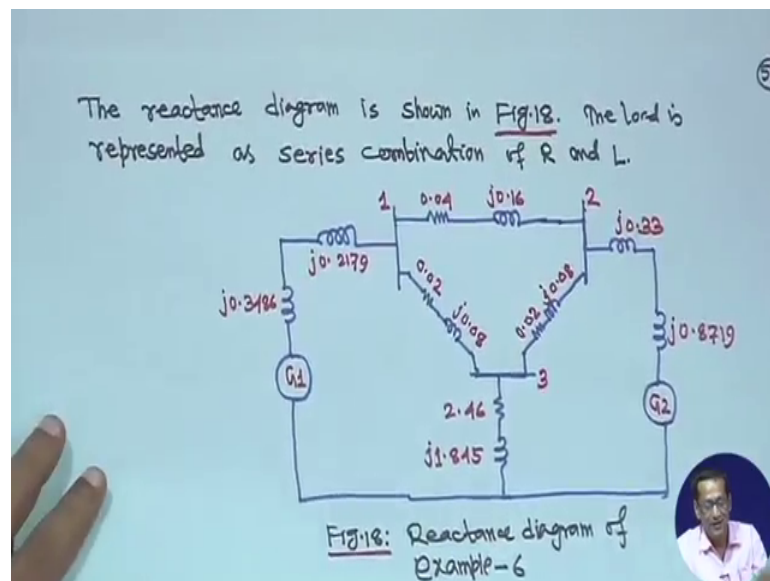 5
The reactance diagram is shown in Fig.18. The load is
represented as series combination of R and L.
1 0.04 j0.16 2
j0.33
j0.2179
0.02 j0.08
0.02 j0.08
j0.3486
j0.8719
G1
3
G2
2.46
j1.845
Fig.18: Reactance diagram of
example-6